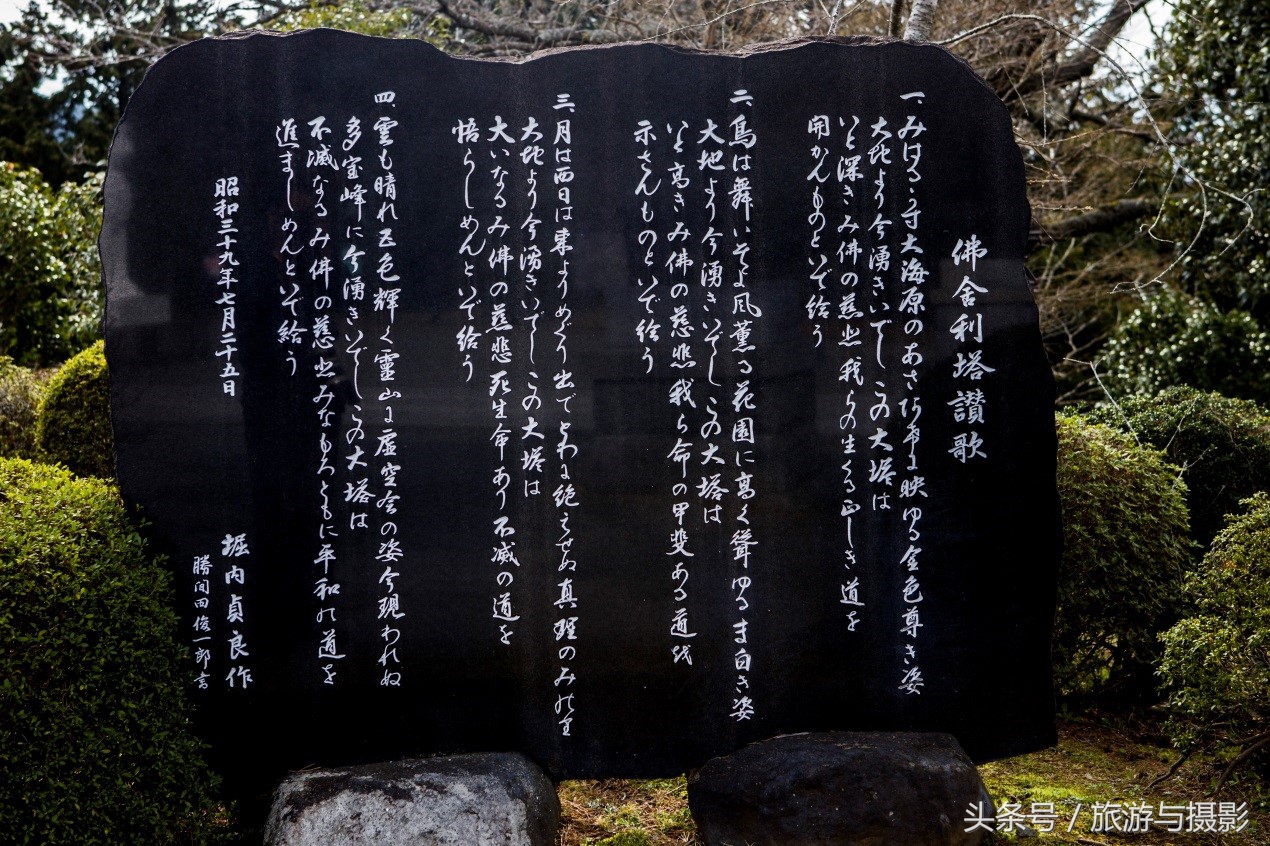 佛舍利塔讃歌
一、みはるかす大海原のあさ に映ゆる金色尊き姿
大地より今湧きいでしこの大塔は
いと深きみ佛の慈悲我らの生くる正しき道を
開かんものといで給う
二、鳥は舞いそよ風薫る花園に高く聳ゆるま白き姿
大地より今湧きいでしこの大塔は
いと高きみ佛の慈悲我ら命の甲斐ある道を
示さんものといで給う
三、月は西日は東よりめぐり出でとわに絶えせぬ真理のみのり
大地より今湧きいでしこの大塔は
大いなるみ佛の慈悲死生命あり不滅の道を
悟らしめんといで給う
四、雲も晴れ五色輝く靈山に虚空会の姿今現われぬ
多宝峰に今湧きいでしこの大塔は
不滅なるみ佛の慈悲みなもろともに平和の道を
進ましめんといで給う
昭和三十九年七月二十五日
堀内貞良作
勝間田俊一郎書
头条号 / 旅游与摄影